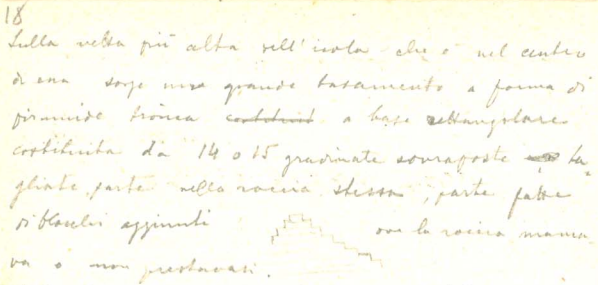 18
Sulla vetta più alta dell'isola che è nel centro
di essa sorge una grande basamento a forma di
piramide tronca costituit a base rettangolare
costituita da 14 o 15 gradinate sovraposte ta-
gliate parte nella roccia stessa, parte fatte
di blocchi aggiunti ove la roccia manca-
va o non prestavasi.